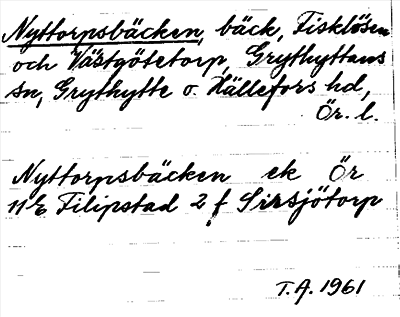 Nyttorpsbäcken, bäck, Fisklösen
och Västgötetorp, Grythyttans
sn, Grythytte o. Hällefors hd,
Ör. l.
Nyttorpsbäcken ek Ör
11E Filipstad 2 f Sirsjötorp
T.A. 1961